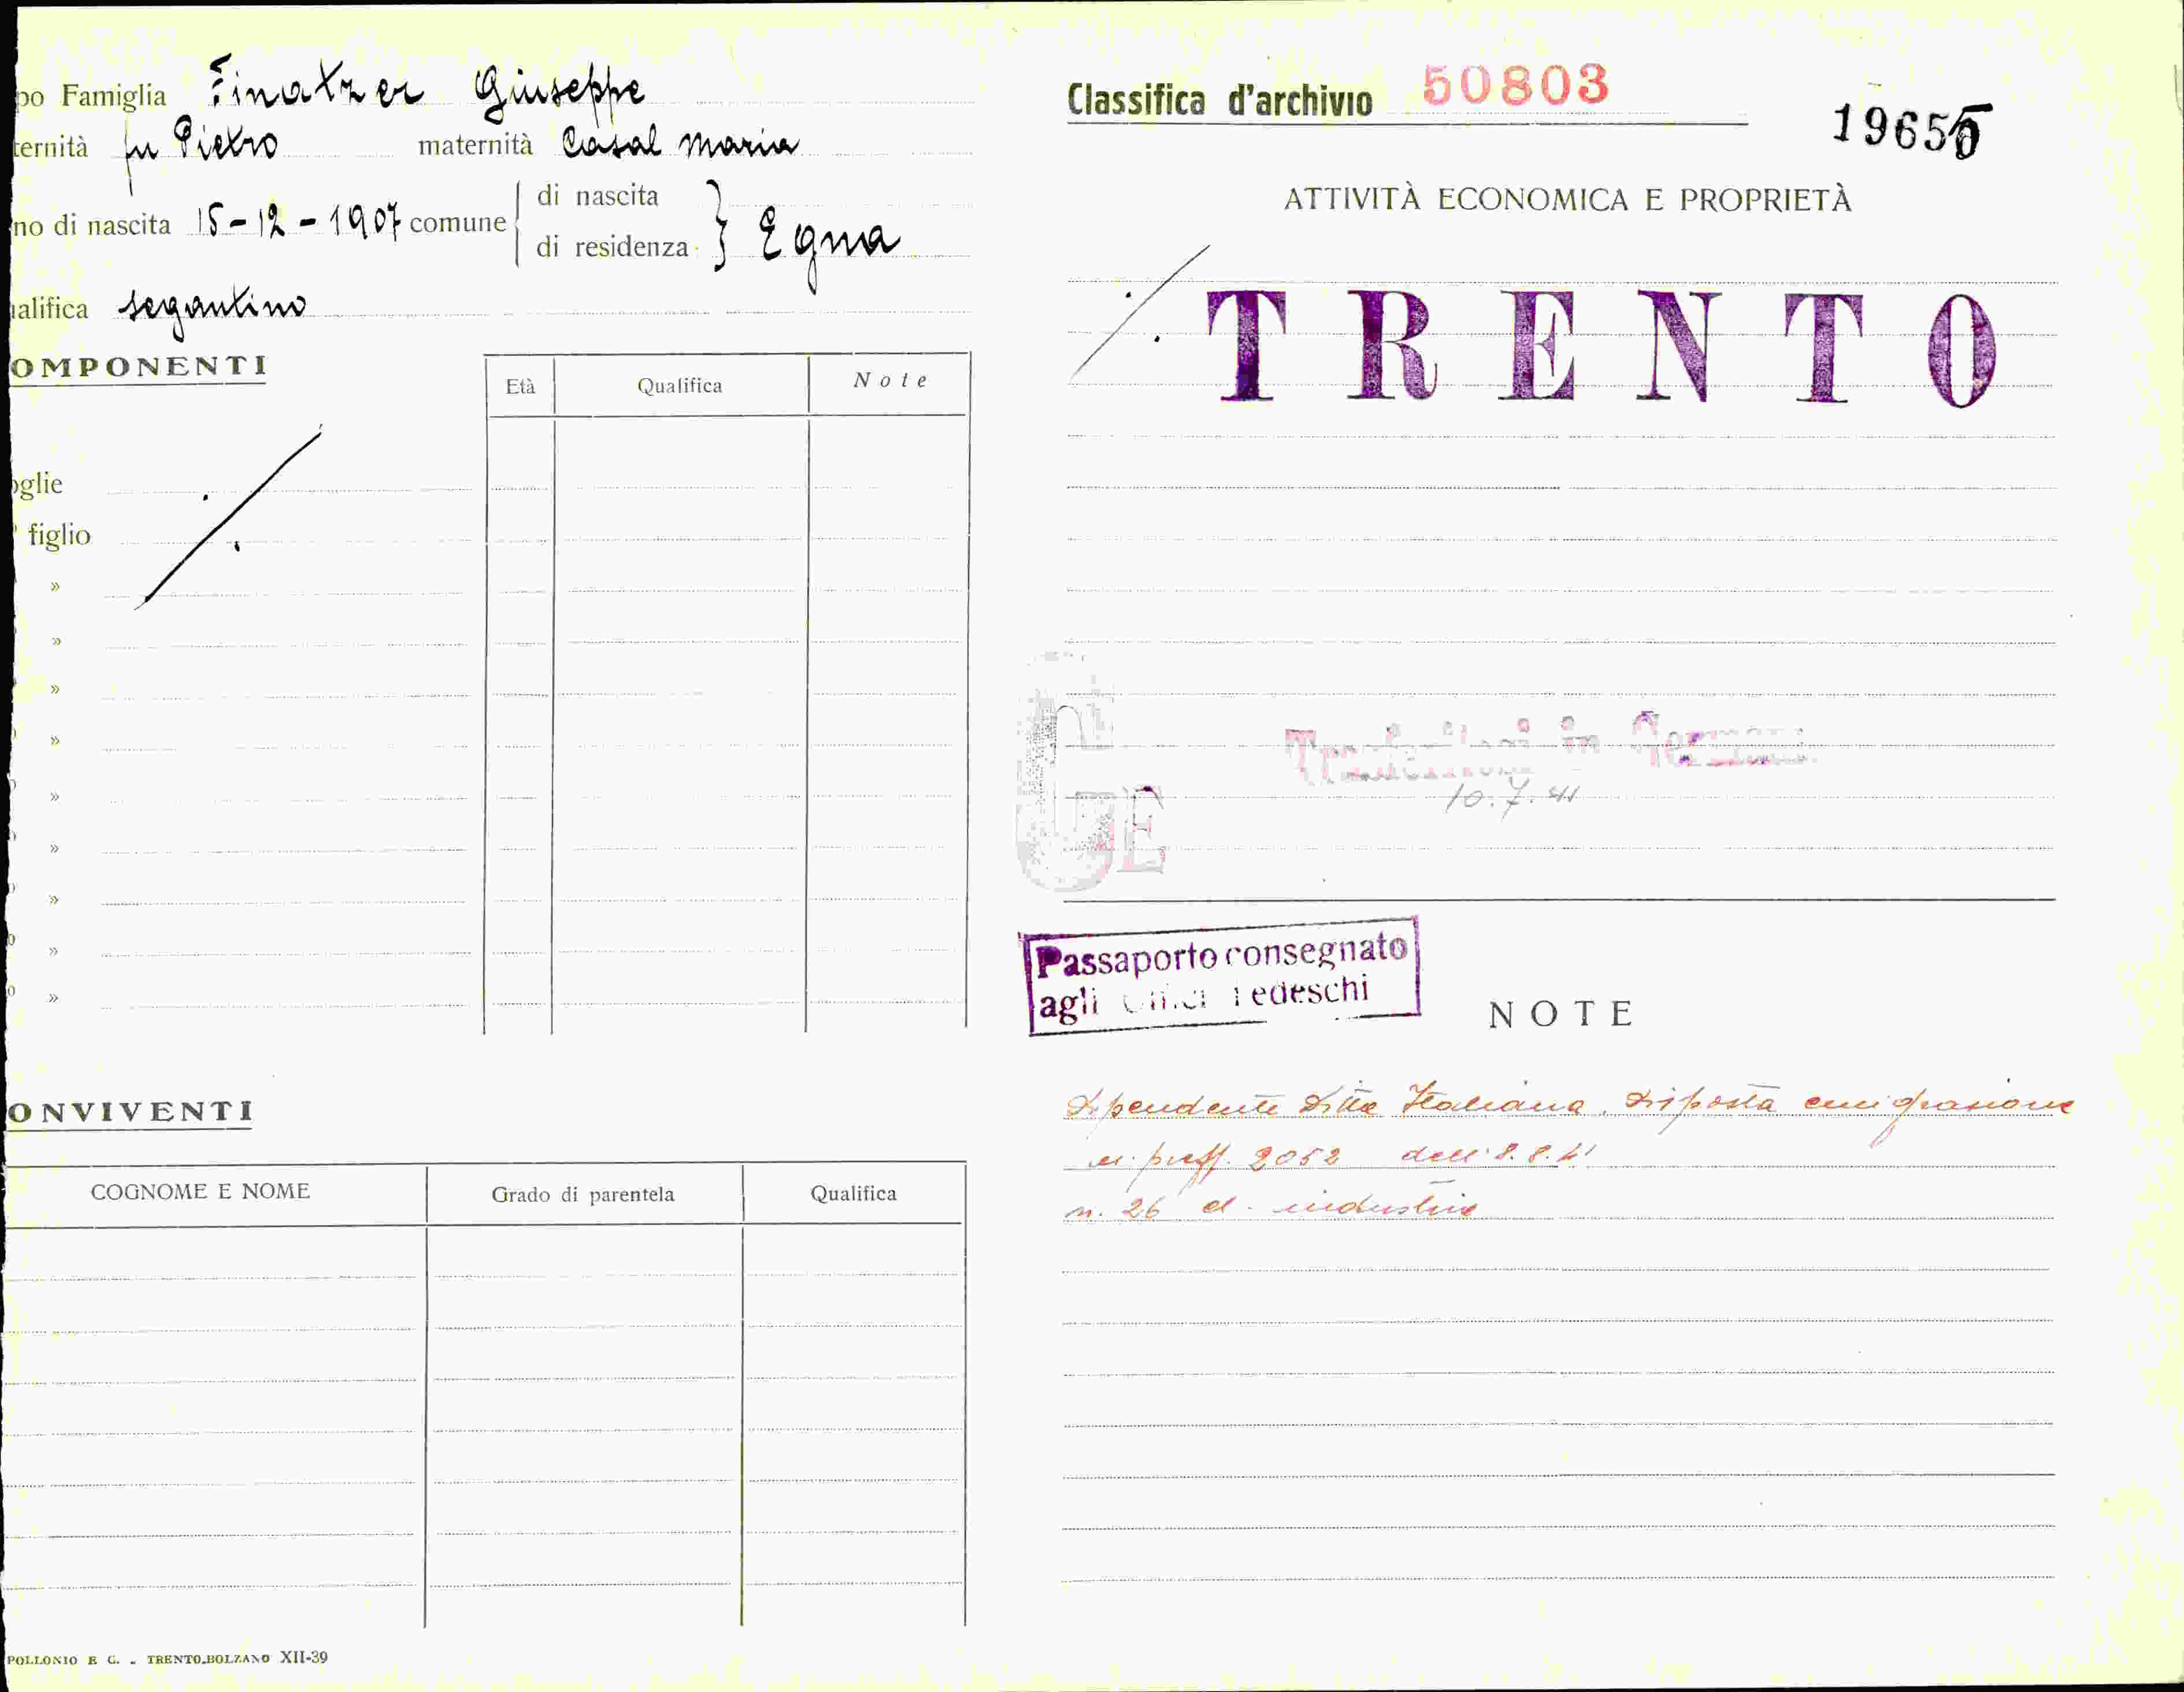 po Famiglia Finatzer Giuseppe
ternità fu Pietro maternità Casal Maria
no di nascita 15-12-1907 comune di nascita di residenza } Egna
alifica segantino
OMPONENTI
Età Qualifica Note
oglie
figlio
»
»
»
»
»
»
»
»
»
ONVIVENTI
COGNOME E NOME Grado di parentela Qualifica
POLLONIO E C. - TRENTO-BOLZANO XII-39
Classifica d'archivio 50803
1965
ATTIVITÀ ECONOMICA E PROPRIETÀ
TRENTO
in
10.7.41
Passaporto consegnato
agli Tedeschi
NOTE
Dipendente Ditta Italiana. Disposta emigrazione
preff. 2052 dell' 8.8.41
n. 26 el. industrie